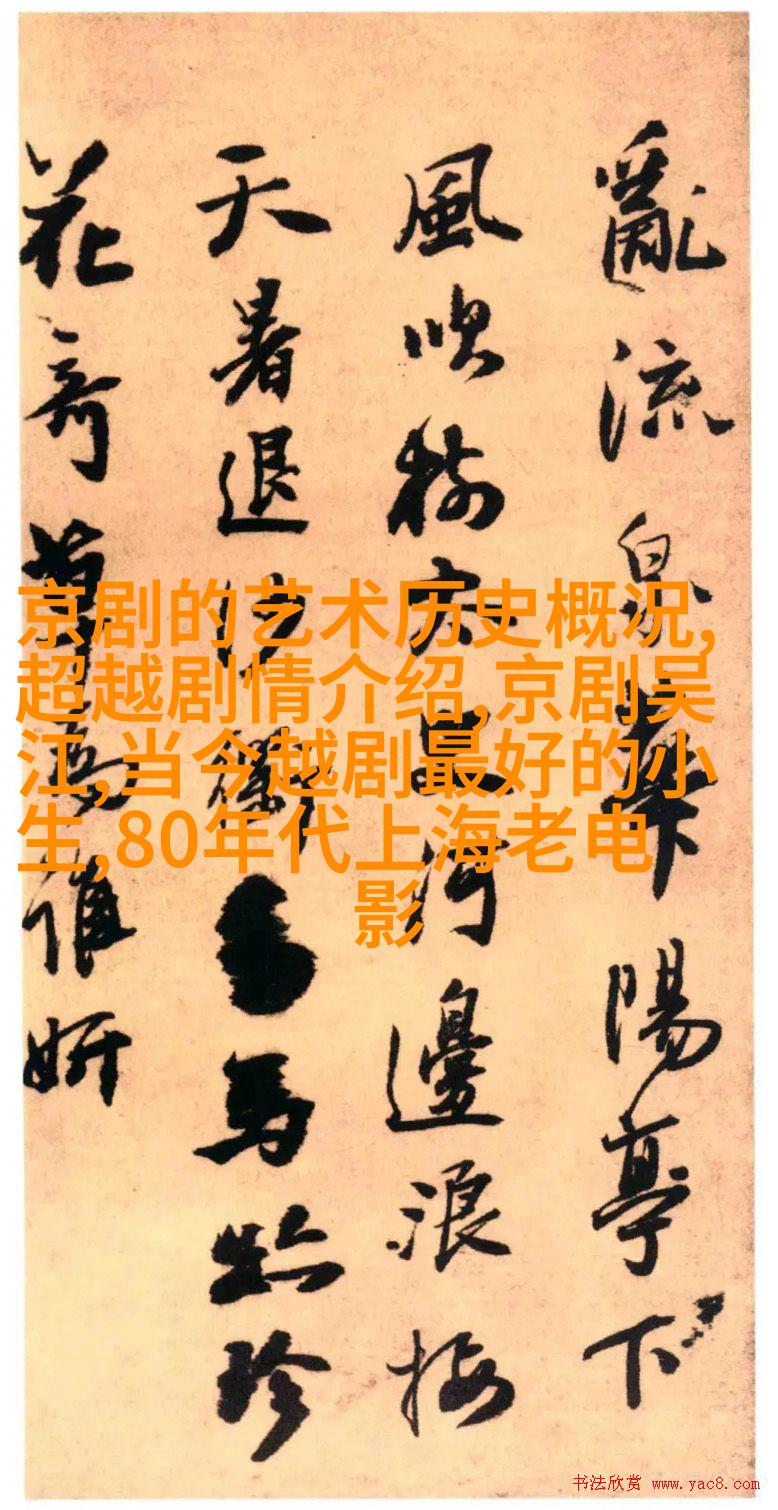 亂流泉陽亭下
風吹河邊浪接
天暑退馬珍
花奇草為誰妍
京剧的艺术历史概况,
超越剧情介绍,京剧吴
江,当今越剧最好的小
生,80年代上海老电
影
书法欣赏 www.yac8.com